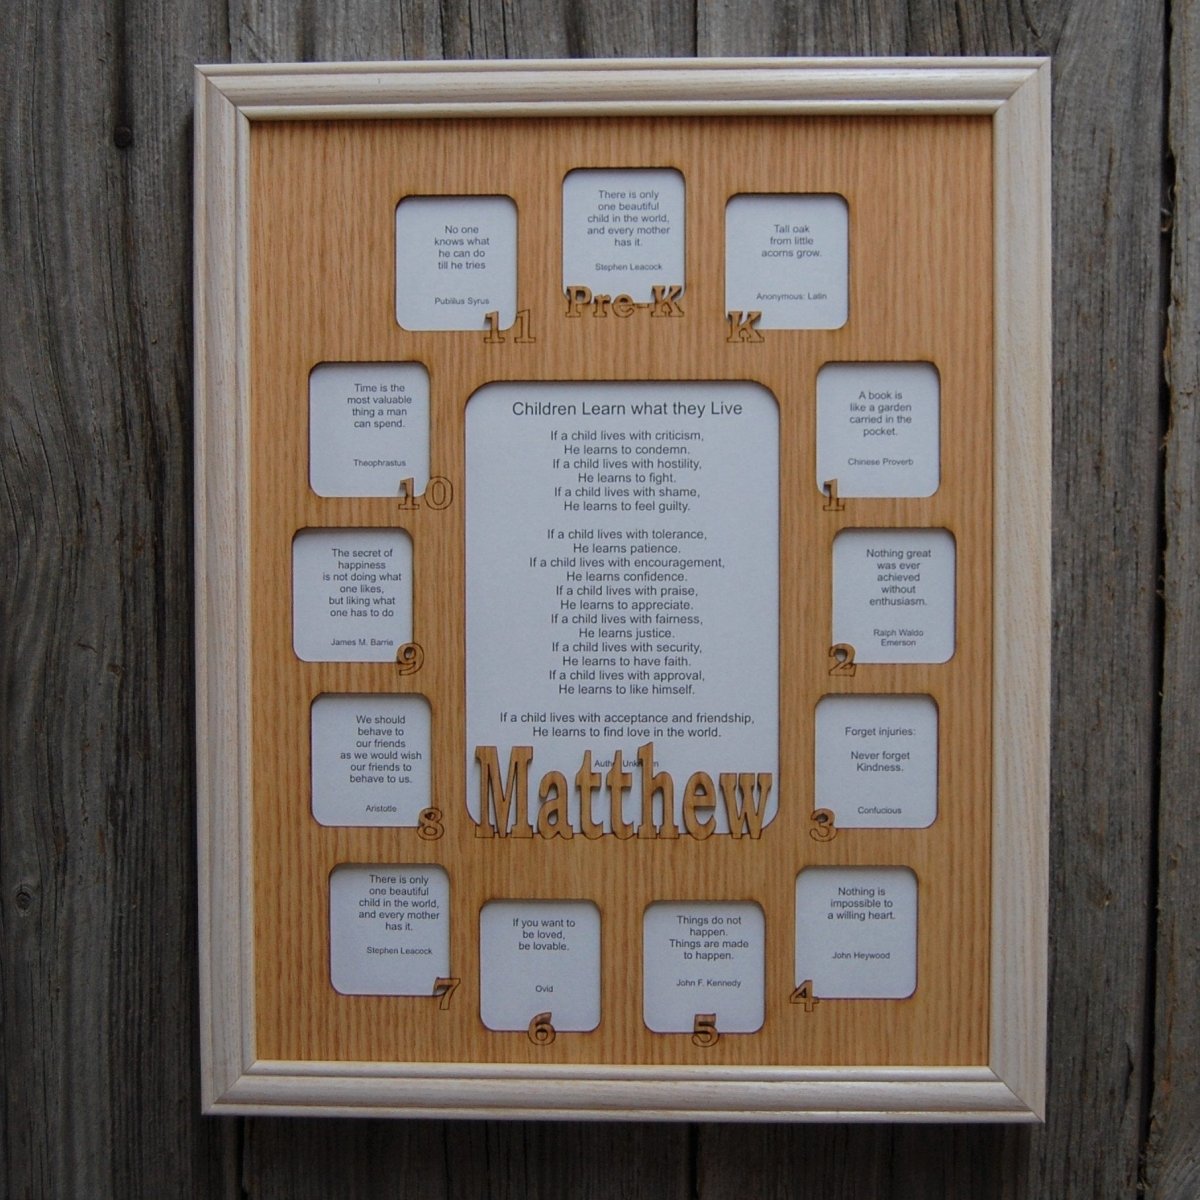 There is only
one beautiful
child in the world,
and every mother
has it.
Stephen Leacock
Pre-K
No one
knows what
he can do
till he tries
Publilius Syrus
11
Tall oak
from little
acorns grow.
Anonymous: Latin
K
Time is the
most valuable
thing a man
can spend.
Theophrastus
10
A book is
like a garden
carried in the
pocket.
Chinese Proverb
1
Children Learn what they Live
If a child lives with criticism,
He learns to condemn.
If a child lives with hostility,
He learns to fight.
If a child lives with shame,
He learns to feel guilty.
If a child lives with tolerance,
He learns patience.
If a child lives with encouragement,
He learns confidence.
If a child lives with praise,
He learns to appreciate.
If a child lives with fairness,
He learns justice.
If a child lives with security,
He learns to have faith.
If a child lives with approval,
He learns to like himself.
If a child lives with acceptance and friendship,
He learns to find love in the world.
Matthew
The secret of
happiness
is not doing what
one likes,
but liking what
one has to do
James M. Barrie
9
Nothing great
was ever
achieved
without
enthusiasm.
Ralph Waldo
Emerson
2
We should
behave to
our friends
as we would wish
our friends to
behave to us.
Aristotle
8
Forget injuries:
Never forget
Kindness.
Confucious
3
There is only
one beautiful
child in the world,
and every mother
has it.
Stephen Leacock
7
If you want to
be loved,
be lovable.
Ovid
6
Things do not
happen.
Things are made
to happen.
John F. Kennedy
5
Nothing is
impossible to
a willing heart.
John Heywood
4